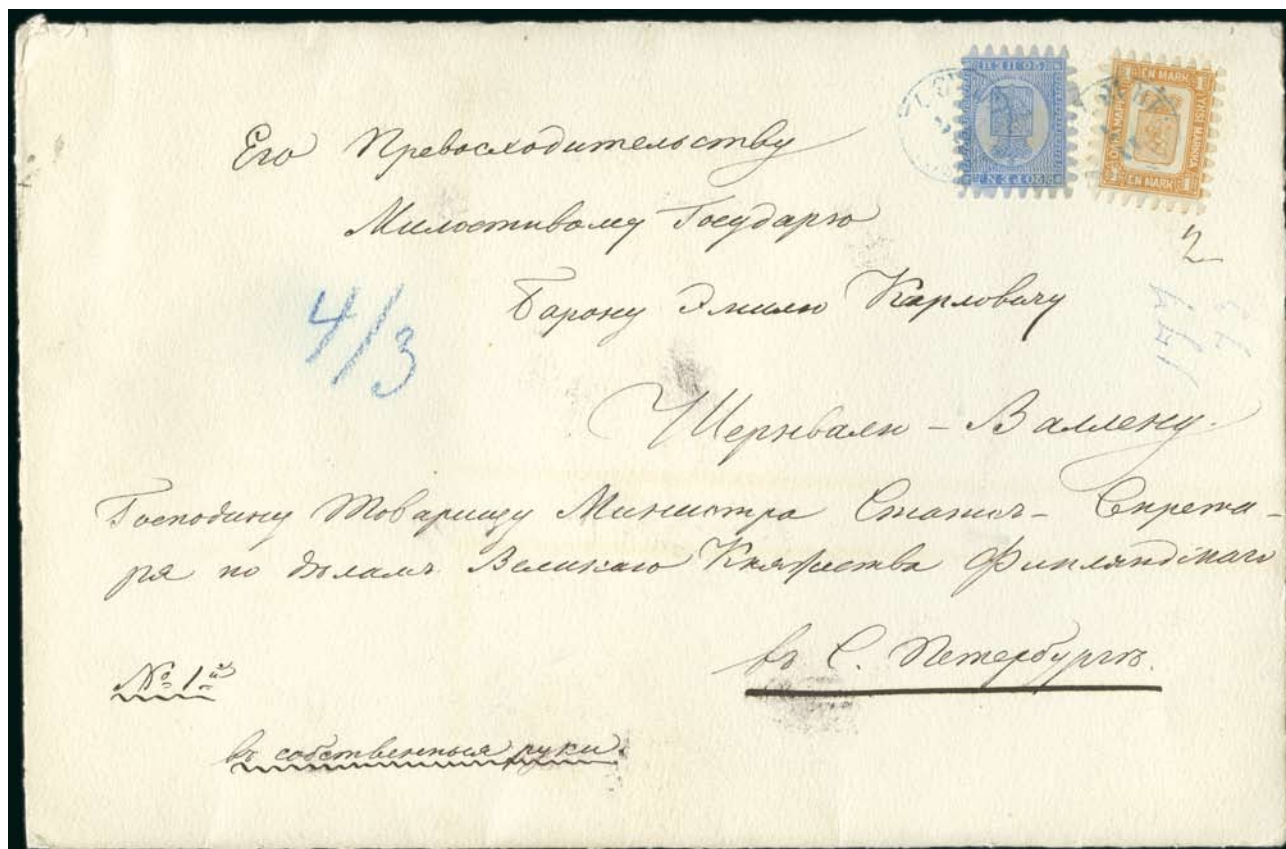 20 PEN
EN MARK
YKSI MARKKA
EN MARK
Его Превосходительству
Милостивому Государю
2
Барону Эмилю Карловичу
4/3
Шернваль-Валлену.
Господину Товарищу Министра Статсъ-Секрета-
ря по дѣламъ Великаго Княжества Финляндскаго
въ С. Петербургѣ.
№ 1й
въ собственныя руки.